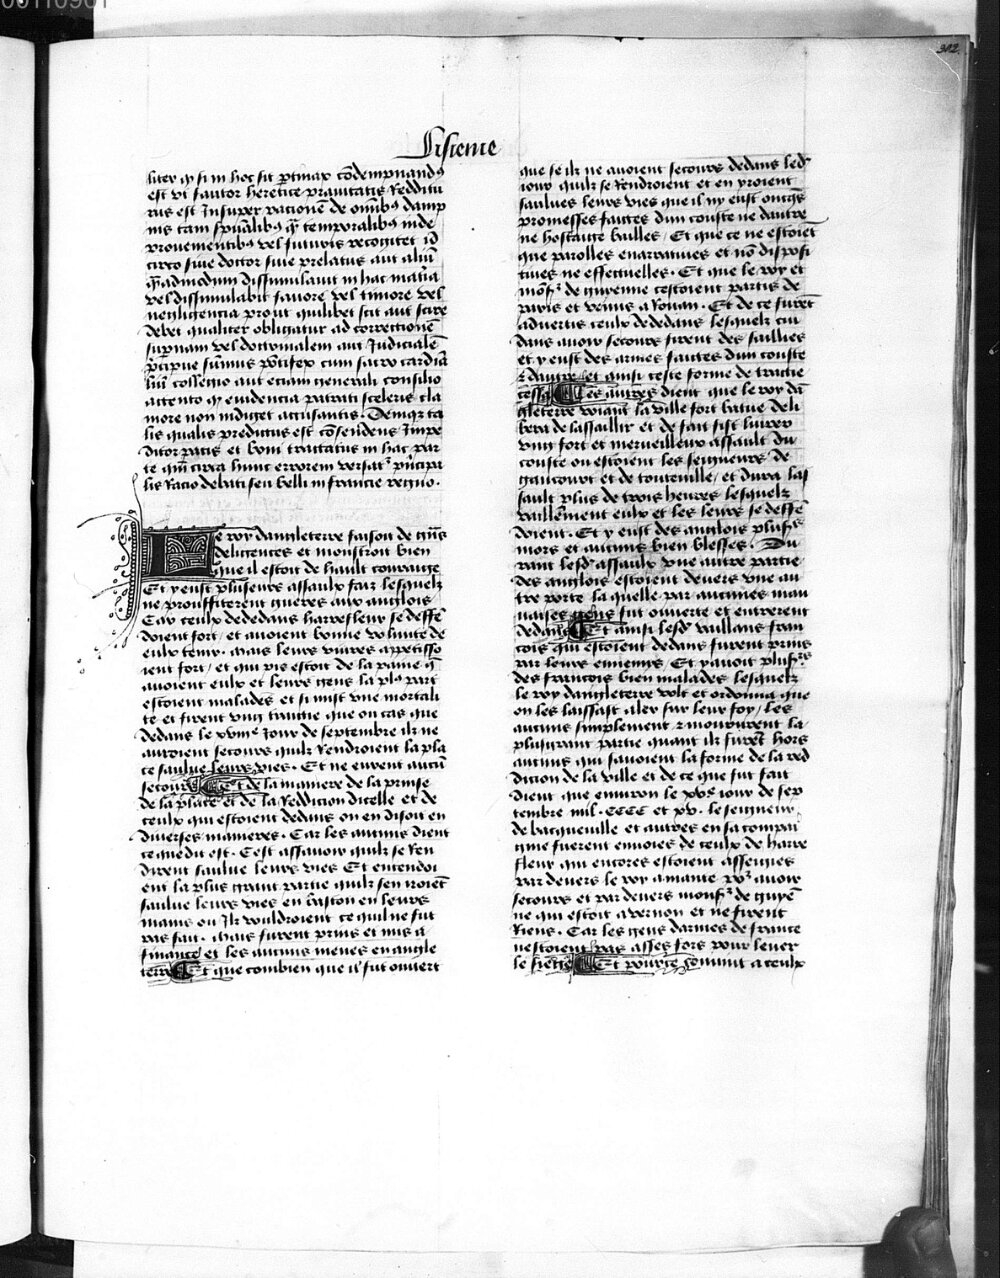 00110901
312
Sisieme
liter q si in hoc sit ptinax cõdempnandus
est vt fautor heretice prauitatis Redditu
rus est Insuper racionẽ de omibus damp
nis tam spũalibus q̃ temporalibus inde
prouementibus vel futuris recogitet id
circo siue doctor siue prelatus aut alius
q̃admodum dissimulauit in hac matia
vel dissimulabit fauore vel timore vel
negligencia prout quilibet scit aut scire
debet qualiter obligatur ad correctionẽ
supnam vel doctrinalem aut Judicialẽ
pcipue sũmus põtifex cum sacro cardina
liũ collegio aut eciam generali consilio
attento q euidencia patrati sceleris cla
more non indiget accusantis. Demiqz ta
lis qualis predictus est cõsendens Jmpe
ditor pacis et boni tractatus in hac par
te qm circa hunc errorem versat pñcipa
lis Racio debati seu belli in francie regno.
Le roy dangleterre faisoit de gñs
deligences et monstroit bien
que il estoit de hault courage
Et y eust plusieurs assaulx faiz lesquelz
ne prouffiterent gueres aux anglois
Car ceulx dededans harrefleur se deffẽ
doient fort, et auoient bonne volunte de
eulx tenir. mais leurs viures appetisso
ient fort, et qui pis estoit de la paine q̃
auoient eulx et leurs gens la plus part
estoient malades et si mist vne mortali
te et firent vng traictie que ou cas que
dedans le xviiie Jour de septembre ilz ne
auroient secours quilz Rendroient la pla
ce saulue leurs vies. Et ne eurent aucũ
secours Et de la maniere de la prinse
de la place et de la Reddicion dicelle et de
ceulx qui estoient dedans on en disoit en
diuerses manieres. Car les aucuns dient
ce que dit est. Cest assauoir quilz se Ren
dirent saulue leurs vies Et entendoi
ent la plus grant partie quilz sen iroiẽt
saulue leurs vies en baston en leurs
mains ou Jlz vouldroient ce qui ne fut
pas fait. mais furent prins et mis a
finance et les aucuns menes en angle
terre Et que combien que il fut ouuert
que se ilz ne auoient secours dedans led
iour quilz se Rendroient et en yroient
saulues leurs vies que il ny eust oncqs
promesses faictes dun couste ne dautre
ne hostaige bailles, Et que ce ne estoiẽt
que parolles enarratiues et nõ disposi
tiues ne effectuelles. Et que le roy et
mons de guienne cestoient partis de
paris et venus a Rouan. Et de ce furẽt
aduertis ceulx dededans lesquelz cui
dans auoir secours firent des saillies
et y eust des armes faictes dun couste
& dautre et ainsi ceste forme de traictie
cessa Les autres dient que le roy dã
gleterre voiant la ville fort batue deli
bera de lassaillir et de fait fist liurer
vng fort et merueilleux assault du
couste ou estoient les seigneurs de
gaucourt et de touteuille, et dura las
sault plus de trois heures lesquelz
vaillẽment eulx et les leurs se deffẽ
doient. Et y eust des anglois plusrs
mors et aucuns bien blesses. Du
rant lesd assaulx vne autre partie
des anglois estoient deuers vne au
tre porte la quelle par aucunes mau
uaises gens fut ouuerte et entrerent
dedans Et ainsi lesd vaillans fran
cois qui estoient dedans furent prins
par leurs ennemys, Et y auoit plusrs
des francois bien malades lesquelz
le roy dangleterre volt et ordonna que
on les laissast aler sur leur foy, les
aucuns simplement & moururent la
plusgrant partie quant ilz furẽt hors
aucuns qui sauoient la forme de la red
dicion de la ville et de ce que fut fait
dient que enuiron le xve iour de sep
tembre mil. CCCC et xv. le seigneur
de bacqueuille et autres en sa compai
gnie fuerent enuoies de ceulx de harre
fleur qui encores estoient assegies
par deuers le roy a mante por auoir
secours et par deuers mons de guyẽ
ne qui estoit a vernon et ne firent
Riens. Car les gens darmes de france
nestoient pas asses fors pour leuer
le siege Et pource senuint a ceulx